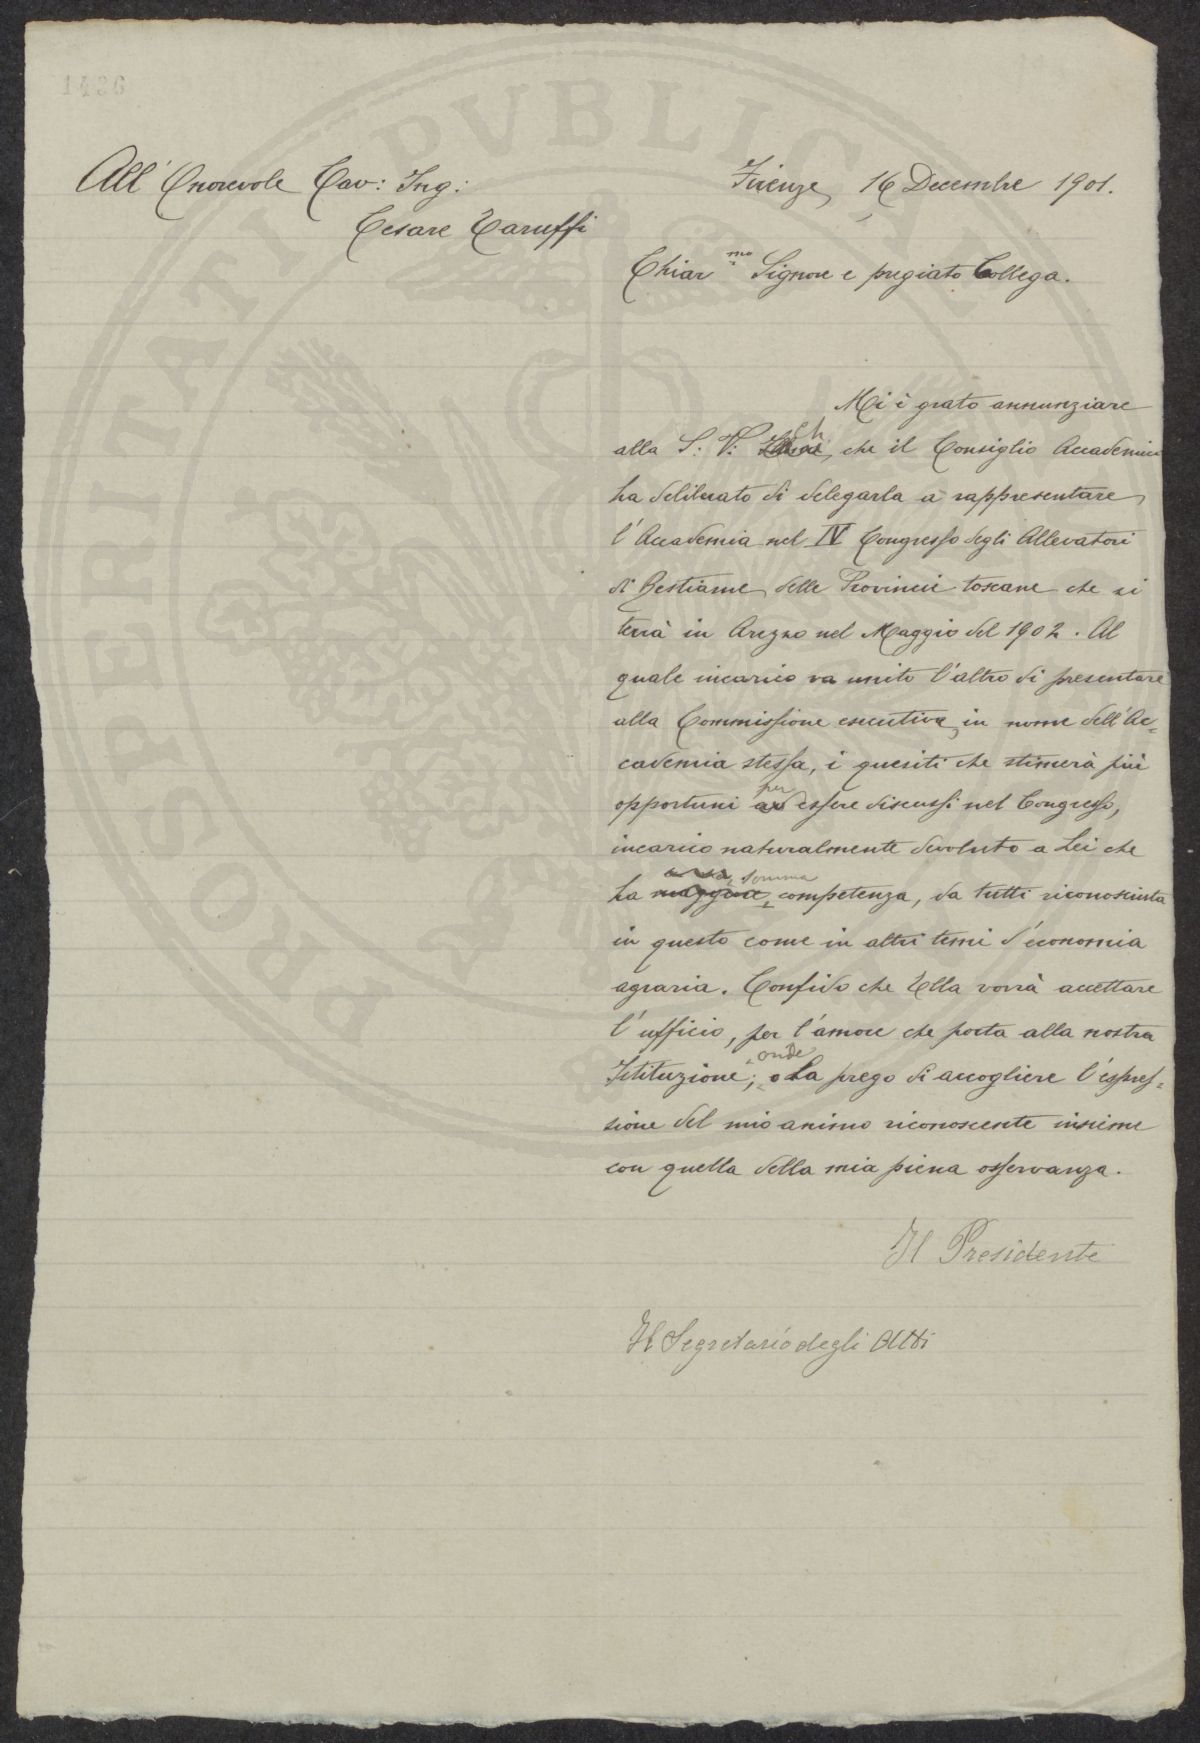 1436
All' Onorevole Cav: Ing:
Cesare Taruffi
Firenze, 16 Decembre 1901.
Chiar mo Signore e pregiato Collega.
Mi è grato annunziare
alla S: V: Ch, che il Consiglio Accademico
ha deliberato di delegarla a rappresentare
l'Accademia nel IV Congresso degli Allevatori
di Bestiame delle Provincie toscane che si
terrà in Arezzo nel Maggio del 1902. Al
quale incarico va unito l'altro di presentare
alla Commissione esecutiva, in nome dell'Ac=
cademia stessa, i quesiti che stimerà più
opportuni ad per essere discussi nel Congresso,
incarico naturalmente devoluto a Lei che
ha maggiore, somma competenza, da tutti riconosciuta
in questo come in altri temi d'economia
agraria. Confido che Ella vorrà accettare
l'ufficio, per l'amore che porta alla nostra
Istituzione; onde La prego di accogliere l'espres=
sione del mio animo riconoscente insieme
con quella della mia piena osservanza.
Il Presidente
Il Segretario degli Atti
PROSPERITATI PVBLICAE